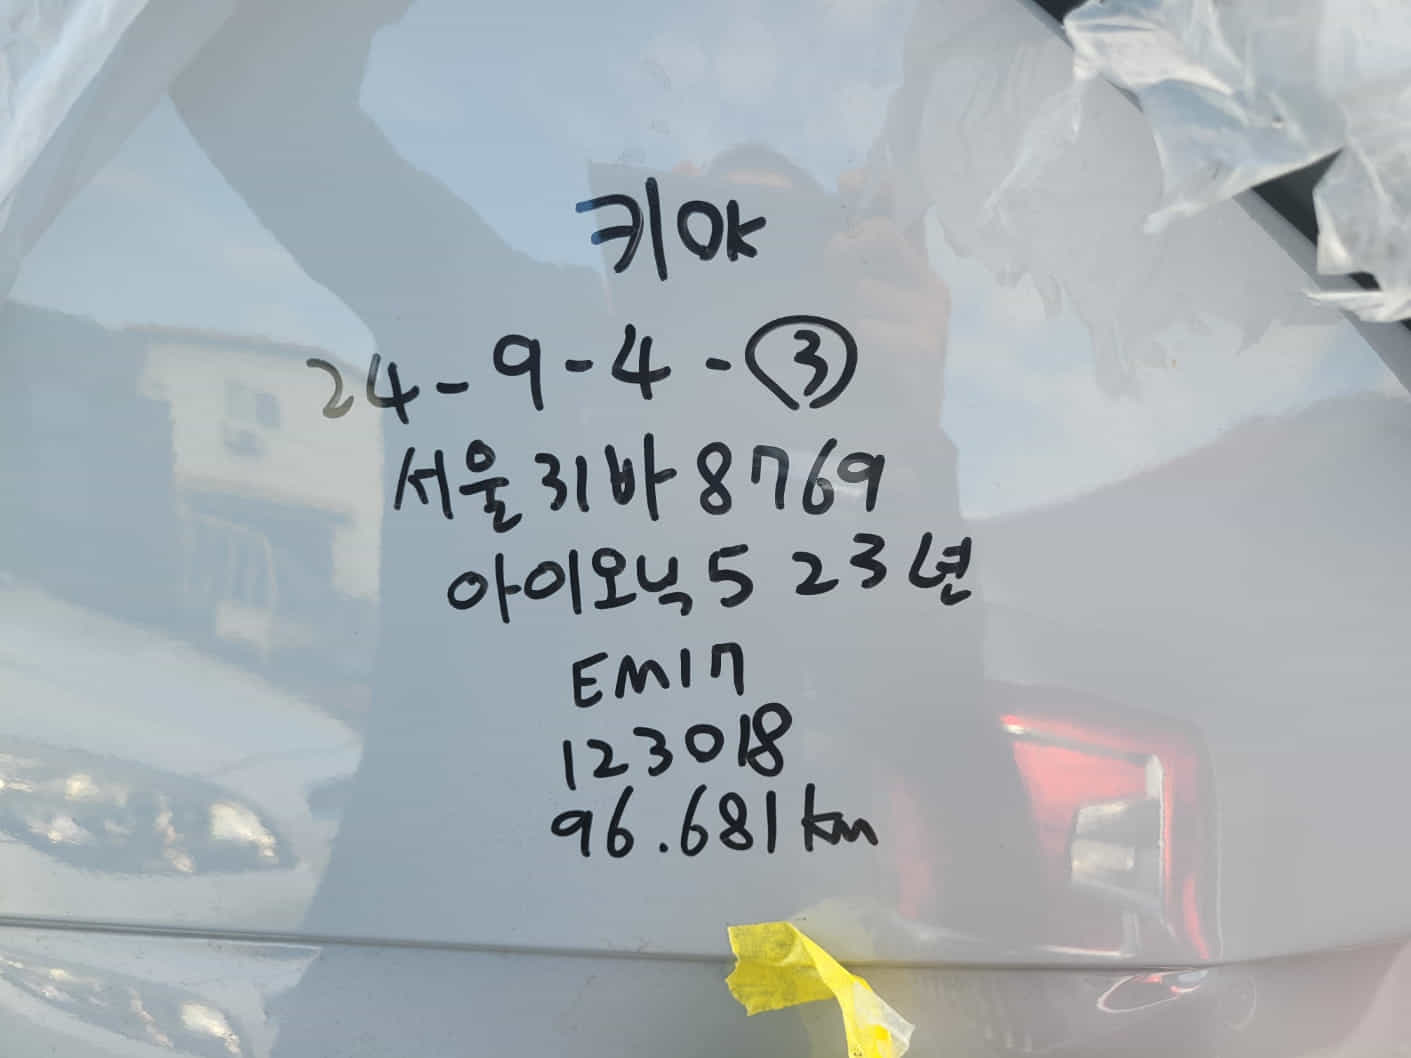 키OK
24-9-4-③
서울31바8769
아이오닉5 23년
EM17
123018
96.681km